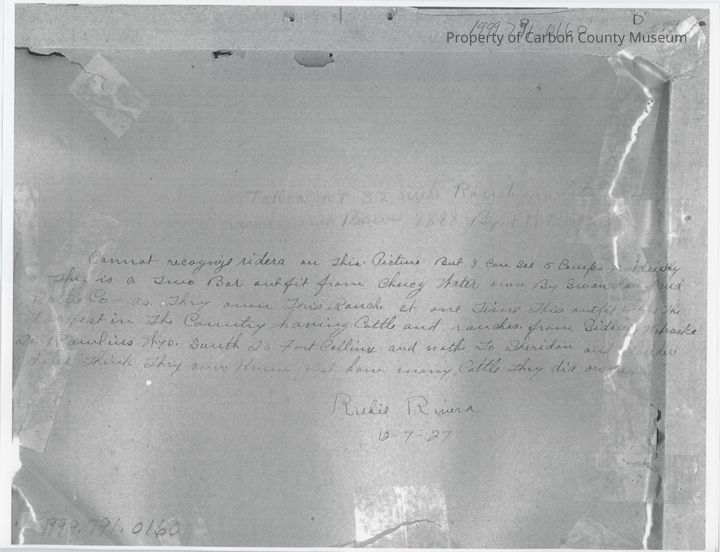 "D"
1999.791.0160
Property of Carbon County Museum
Taken at 32 mile Ranch
By
Cannot recognize riders on this Picture But I can see 5 Camps evidently
This is a Two Bar outfit from Chucg Water own By Swan Land and
Cattle Co - as They own This Ranche at one Time This outfit was The
largest in The Country having Cattle and ranches from Nebraska
To Rawlins Wyo. South To Fort Collins and north To Sheridan and
dont Think They ever Know Just how many Cattle They did own
Rivera
12-7-27
1999.791.0160